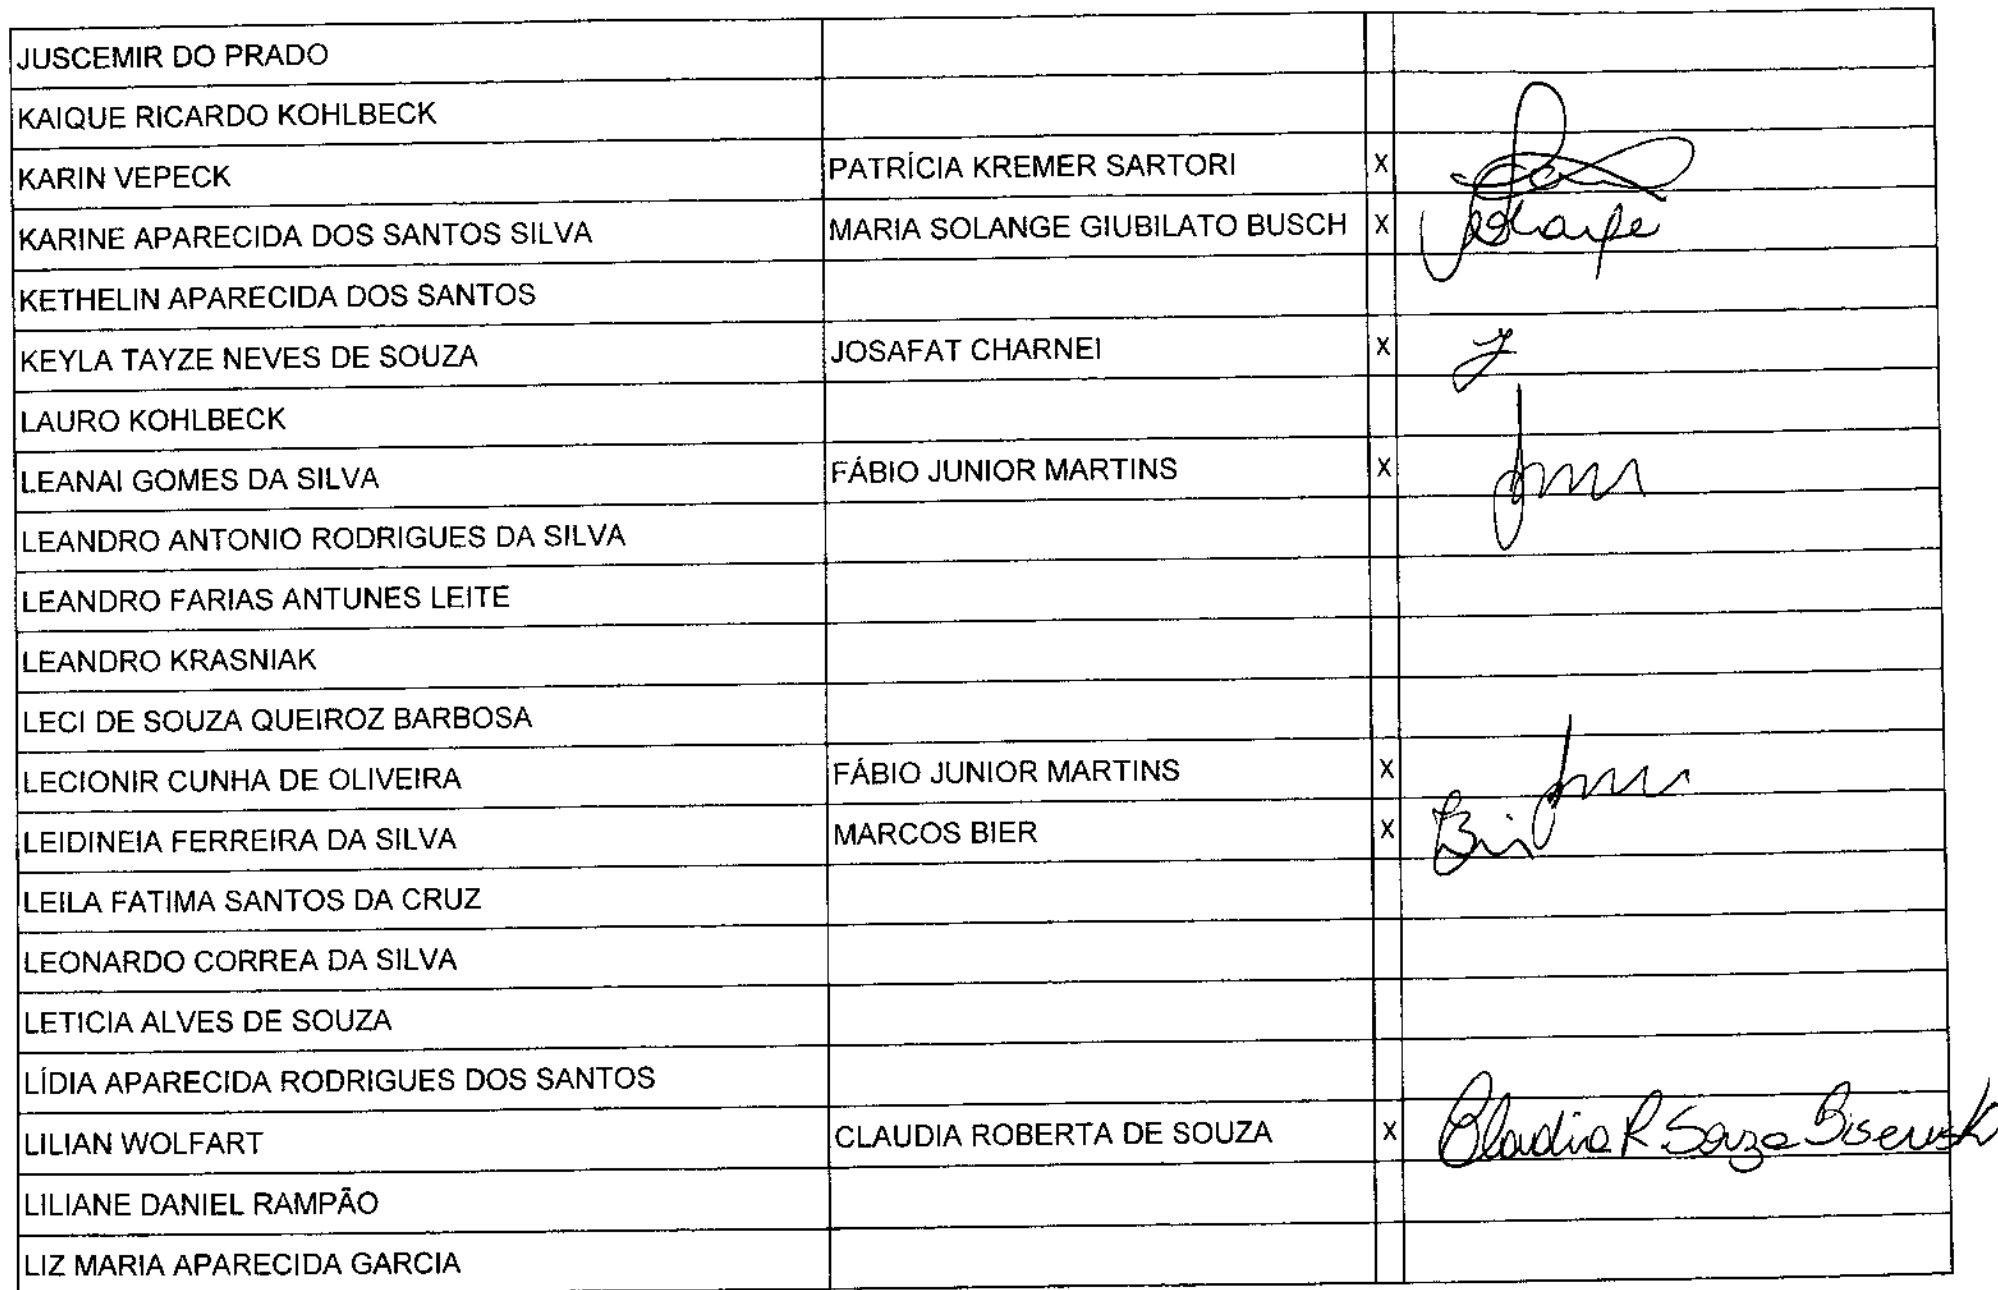 JUSCEMIR DO PRADO
KAIQUE RICARDO KOHLBECK
KARIN VEPECK PATRÍCIA KREMER SARTORI X
KARINE APARECIDA DOS SANTOS SILVA MARIA SOLANGE GIUBILATO BUSCH X
KETHELIN APARECIDA DOS SANTOS
KEYLA TAYZE NEVES DE SOUZA JOSAFAT CHARNEI X
LAURO KOHLBECK
LEANAI GOMES DA SILVA FÁBIO JUNIOR MARTINS X
LEANDRO ANTONIO RODRIGUES DA SILVA
LEANDRO FARIAS ANTUNES LEITE
LEANDRO KRASNIAK
LECI DE SOUZA QUEIROZ BARBOSA
LECIONIR CUNHA DE OLIVEIRA FÁBIO JUNIOR MARTINS X
LEIDINEIA FERREIRA DA SILVA MARCOS BIER X
LEILA FATIMA SANTOS DA CRUZ
LEONARDO CORREA DA SILVA
LETICIA ALVES DE SOUZA
LÍDIA APARECIDA RODRIGUES DOS SANTOS
LILIAN WOLFART CLAUDIA ROBERTA DE SOUZA X Claudia R Souza
LILIANE DANIEL RAMPÃO
LIZ MARIA APARECIDA GARCIA